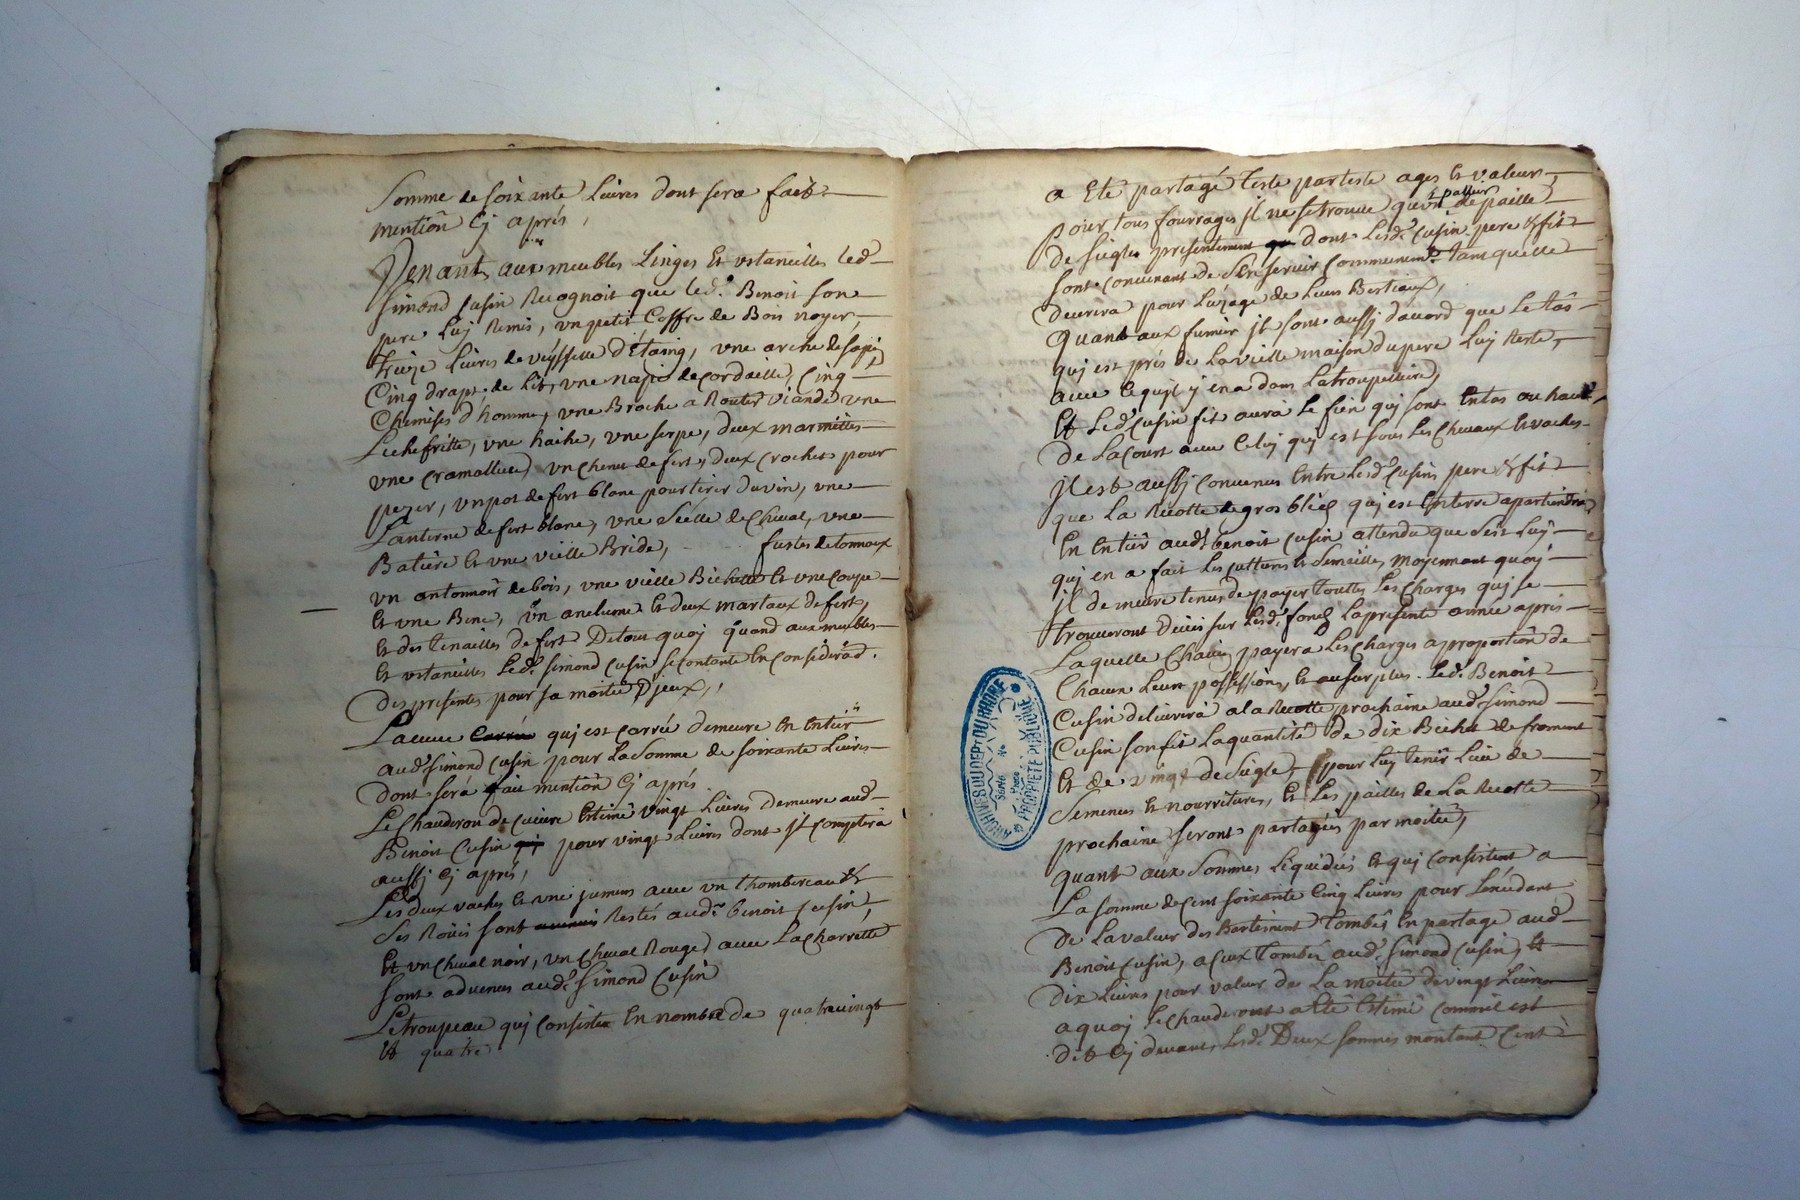 Somme de soixante Livres dont sera fait
mention Cy aprés,
Venant aux meubles Linges Et vstancilles led.
Simond Cusin Recognoit que led. Benoit son
pere Luy Remis, vn petit Coffre de Bois noyer,
Treize Livres de veysselle d'Etaing, vne arche de sapin
Cinq draps de Lit, vne de Cordaille, Cinq
Chemises d'homme, vne Broche a Routir viande vne
Lichefritte, vne hache, vne serpe, deux marmittes
vne Cramalliere, vn Chenet de fert, deux Crochets pour
pezer, vn pot de fert blanc pour tirer du vin, vne
Lanterne de fert blanc, vne Sëelle de Cheval, vne
Batiere Et vne vieille Bride, fustes de tonneaux
vn antonnoir de bois, vne vieille Et vne Coupe
Et vne Bene, vn anclume Et deux martaux de fert,
Et des tenailles de fert De tout quoy quand aux meubles
Et vstancilles led. Simond Cusin se contante En Considerad.
des presentes pour sa moitié D'jeux,
La cuve qui est Carrée demeure En Entier
aud. Simond Cusin pour La Somme de soixante Livres
dont sera fait mention Cy aprés
Le Chauderon de Cuivre Estimé vingt Livres demeure aud.
Benoit Cusin pour vingt Livres dont jl Comptera
aussy Cy aprés,
Les deux vaches Et vne jument avec vn thombereau Et
Ses Roües sont Restés aud. benoit Cusin,
Et vn Cheval noir, vn Cheval Rouge avec La Charrette
sont advenus aud. Simond Cusin
Le troupeau quj Consiste En nombre de quatrevingt
Et quatre
a Eté partagé teste par teste ages Et valeurs,
pailler
pour tous fourrages jl ne se trouve qu'vn de paille
de siegles presentement dont Lesd. Cusin pere & fils
sont Convenant de S'En servir Communem. tant quelle
deurera pour L'uzage de Leurs Bestiaux,
Quant aux fumier jls sont aussj d'acord que Le tas
quj est prés de La vieille maison du pere Luy Reste,
avec Ce qu'jl y en a dans La troupelliere
Et Led. Cusin fils aura Le fien quj sont En tas au haut
de La Court avec Celuy quj est sous Les Chevaux Et vaches
jl est aussj Convenus Entre Lesd. Cusins pere & fils
que La Recolte de gros bleds quj est En terre apartiendra
En Entier aud. benoit Cusin attendu que C'est Luy
quj en a fait Les cultures Et Semailles, moyennant quoy
jl demeure tenus de payer touttes Les Charges quj se
trouveront Deües sur Lesd. fonds La presente année aprés
Laquelle Chacun payera Les Charges a proportion de
Chacun Leurs possessions, Et au surplus Led. Benoit
Cusin delivrera a la Recolte prochaine aud. Simond
Cusin son fils La quantité de dix Bichet de froment
Et de vingt de Siegle, pour Luy tenir Lieu de
Semences Et nourritures, Et Les pailles de La Recolte
prochaine seront partagées par moitié,
quant aux Sommes Liquidées Et quj Consistent a
La somme de Cent soixante Cinq Livres pour L'excedant
de La valeur des Bastiment tombés En partage aud.
Benoit Cusin, a Ceux tombés aud. Simond Cusin, Et
dix Livres pour valeur de La moitié de vingt Livres
a quoj Le Chauderont a Eté Estimé Comme Est
dit Cy devant, Lesd. Deux Sommes montant Cent
ARCHIVES DU DEPT DU RHONE
PROPRIÉTÉ PUBLIQUE